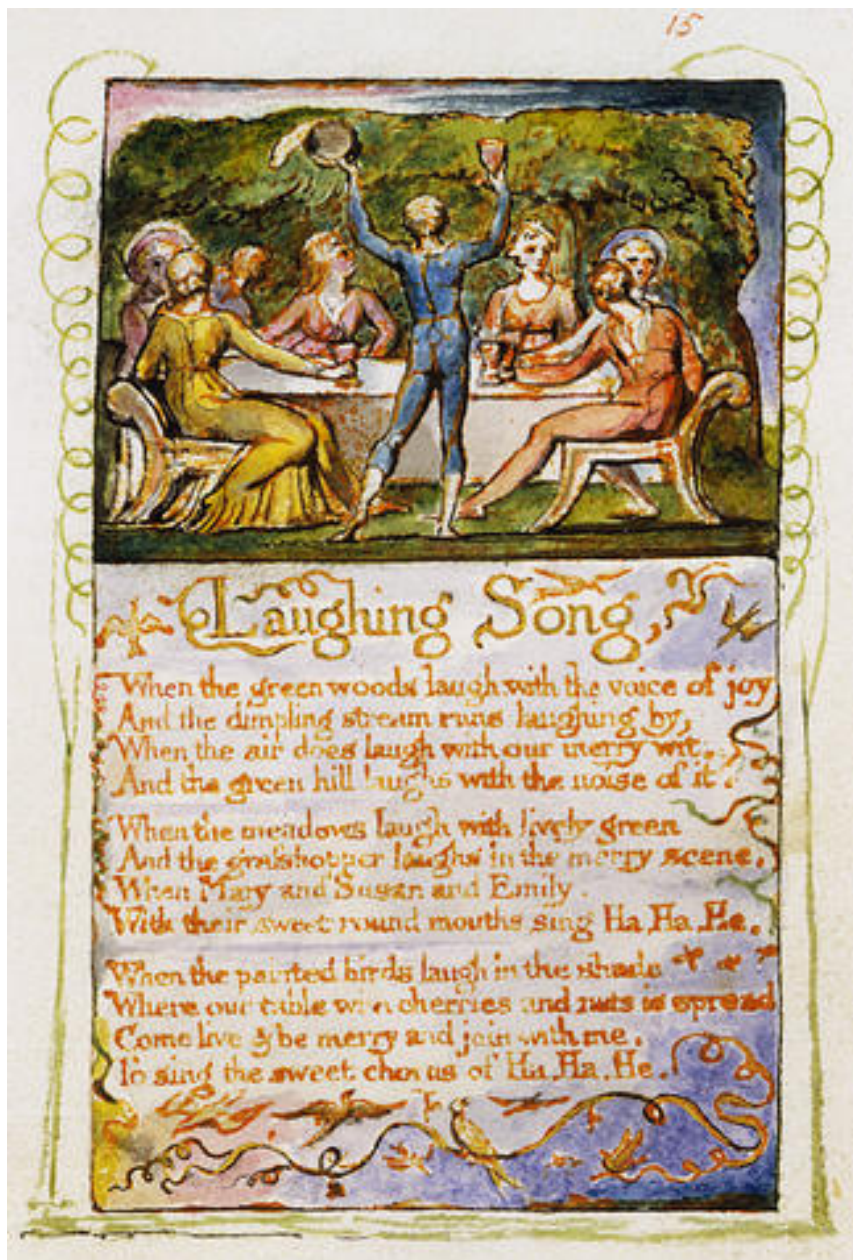 15
Laughing Song,
When the green woods laugh with the voice of joy
And the dimpling stream runs laughing by,
When the air does laugh with our merry wit,
And the green hill laughs with the noise of it.
When the meadows laugh with lively green
And the grasshopper laughs in the merry scene.
When Mary and Susan and Emily.
With their sweet round mouths sing Ha, Ha, He.
When the painted birds laugh in the shade
Where our table with cherries and nuts is spread
Come live & be merry and join with me.
To sing the sweet chorus of Ha, Ha, He.